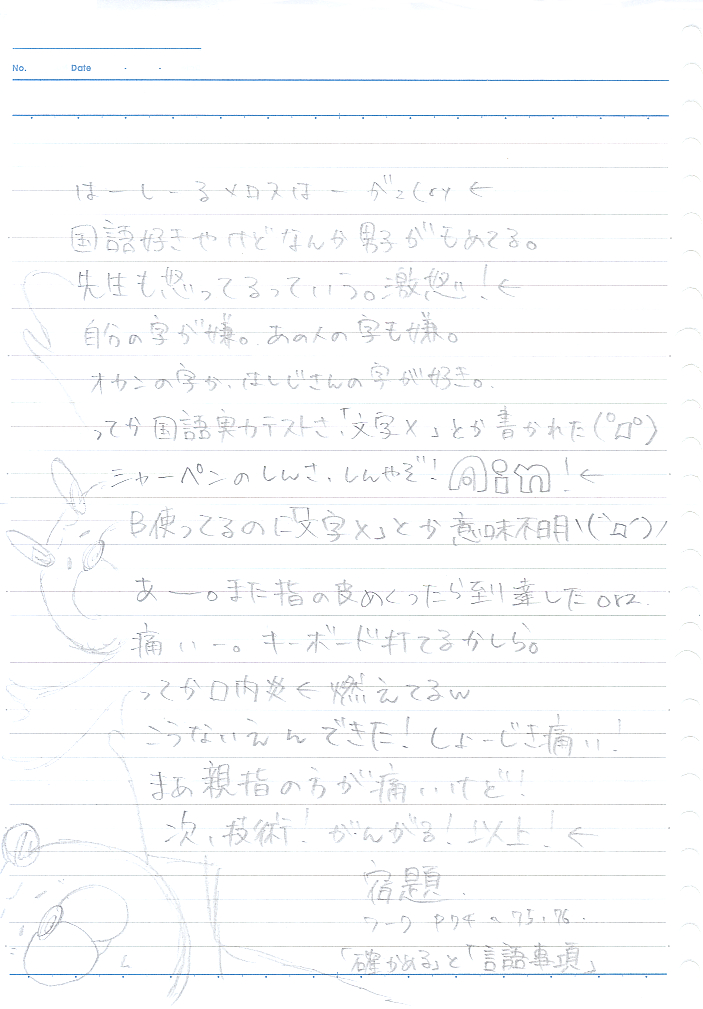 No.　Date　・　・
はーしーるメロスはー が
国語好きやけどなんか男子がもめてる。
先生も怒ってるっていう。激怒!! ←
自分の字が嫌。あの人の字も嫌。
オカンの字か、はしじさんの字が好き。
ってか国語実力テストさ、「文字×」とか書かれた(°д°)
シャーペンのしんさ、しんやぞ! ! ←
B使ってるのに「文字×」とか意味不明ヽ(`д´)ノ
あー。また指の皮めくったら到達したorz
痛いー。キーボード打てるかしら。
ってか口内炎← 燃えてるw
こうないえんできた! しょーじき痛い!
まあ親指の方が痛いけど!
次、技術! がんがる! 以上! ←
宿題
ワーク P74～75,76.
「確かめる」と「言語事項」